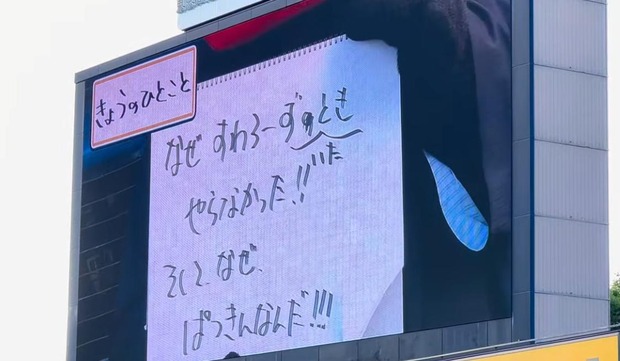 きょうのひとこと
なぜ すわろーずのとき
いた
やらなかった!!
そして、なぜ、
ぱっきんなんだ!!!